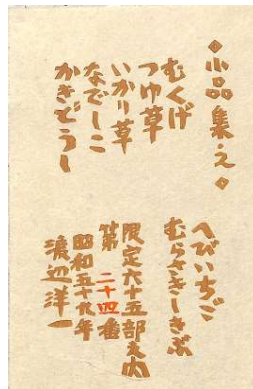 ◇小品集・え◇
むくげ
つゆ草
いかり草
なでしこ
かきどうし
へびいちご
むらさきしきぶ
限定六十五部之内
第二十四番
昭和五十九年
渡辺洋一